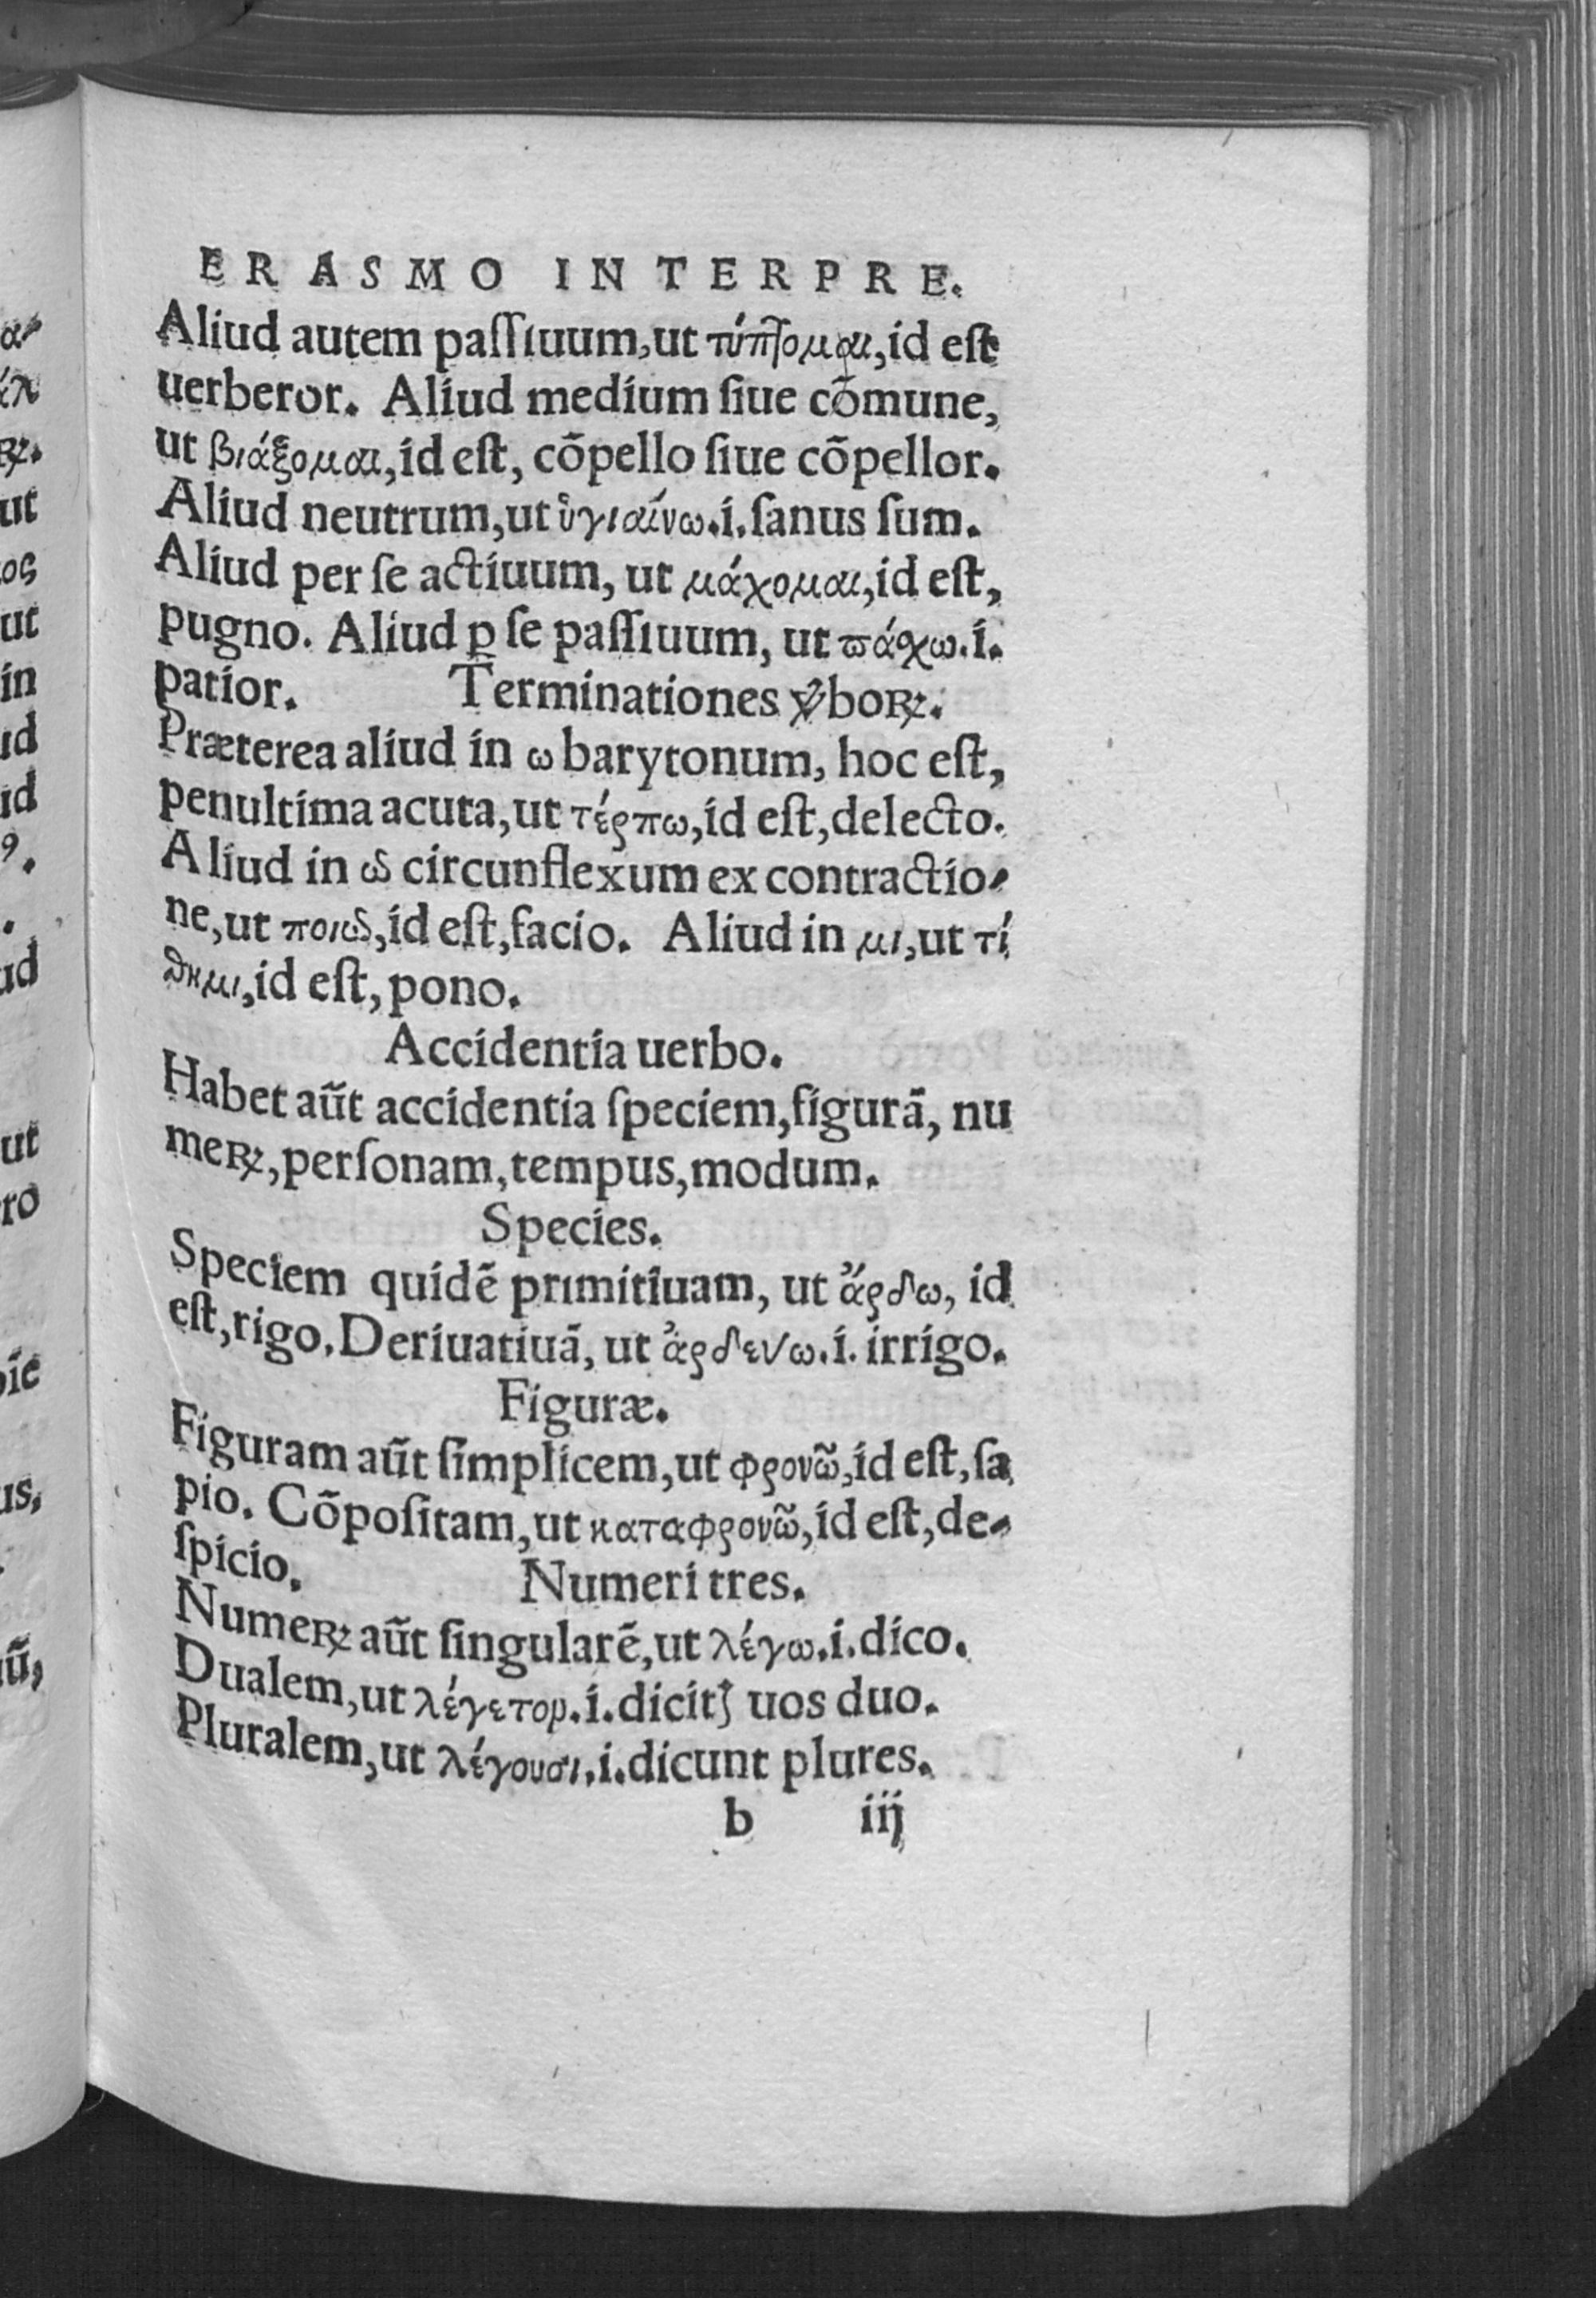 ERASMO INTERPRE.
Aliud autem paſſiuum, ut τύπτομαι, id eſt
uerberor. Aliud medium ſiue cõmune,
ut βιάξομαι, id eſt, cõpello ſiue cõpellor.
Aliud neutrum, ut ὑγιαίνω. i. ſanus ſum.
Aliud per ſe actiuum, ut μάχομαι, id eſt,
pugno. Aliud ꝑ ſe paſſiuum, ut πάσχω. i.
patior. Terminationes ꝟboꝝ.
Præterea aliud in ω barytonum, hoc eſt,
penultima acuta, ut τέρπω, id eſt, delecto.
Aliud in ῶ circunflexum ex contractio-
ne, ut ποιῶ, id eſt, facio. Aliud in μι, ut τί
θημι, id eſt, pono.
Accidentia uerbo.
Habet aũt accidentia ſpeciem, figurã, nu
meꝝ, perſonam, tempus, modum.
Species.
Speciem quidẽ primitiuam, ut ἄρδω, id
eſt, rigo. Deriuatiuã, ut ἀρδεύω. i. irrigo.
Figuræ.
Figuram aũt ſimplicem, ut φρονῶ, id eſt, ſa
pio. Cõpoſitam, ut καταφρονῶ, id eſt, de-
ſpicio. Numeri tres.
Numeꝝ aũt ſingularẽ, ut λέγω. i. dico.
Dualem, ut λέγετον. i. dicitꝭ uos duo.
Pluralem, ut λέγουσι. i. dicunt plures.
b iij